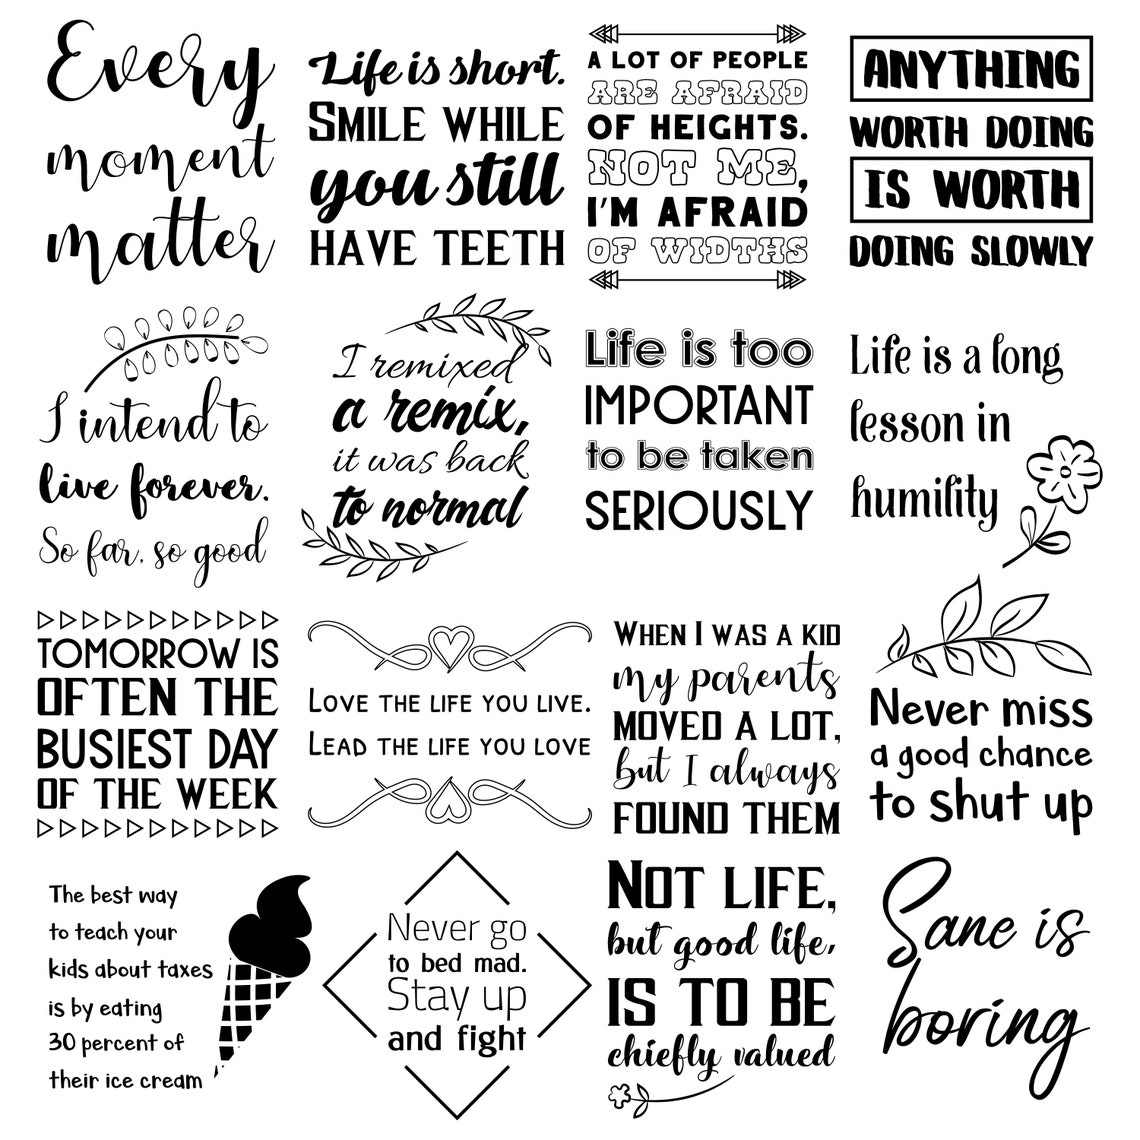 Every
moment
matter
Life is short.
SMILE WHILE
you still
HAVE TEETH
A LOT OF PEOPLE
ARE AFRAID
OF HEIGHTS.
NOT ME,
I'M AFRAID
OF WIDTHS
ANYTHING
WORTH DOING
IS WORTH
DOING SLOWLY
I intend to
live forever.
So far, so good
I remixed
a remix,
it was back
to normal
Life is too
IMPORTANT
to be taken
SERIOUSLY
Life is a long
lesson in
humility
TOMORROW IS
OFTEN THE
BUSIEST DAY
OF THE WEEK
LOVE THE LIFE YOU LIVE.
LEAD THE LIFE YOU LOVE
WHEN I WAS A KID
my parents
MOVED A LOT,
but I always
FOUND THEM
Never miss
a good chance
to shut up
The best way
to teach your
kids about taxes
is by eating
30 percent of
their ice cream
Never go
to bed mad.
Stay up
and fight
NOT LIFE,
but good life,
IS TO BE
chiefly valued
Sane is
boring